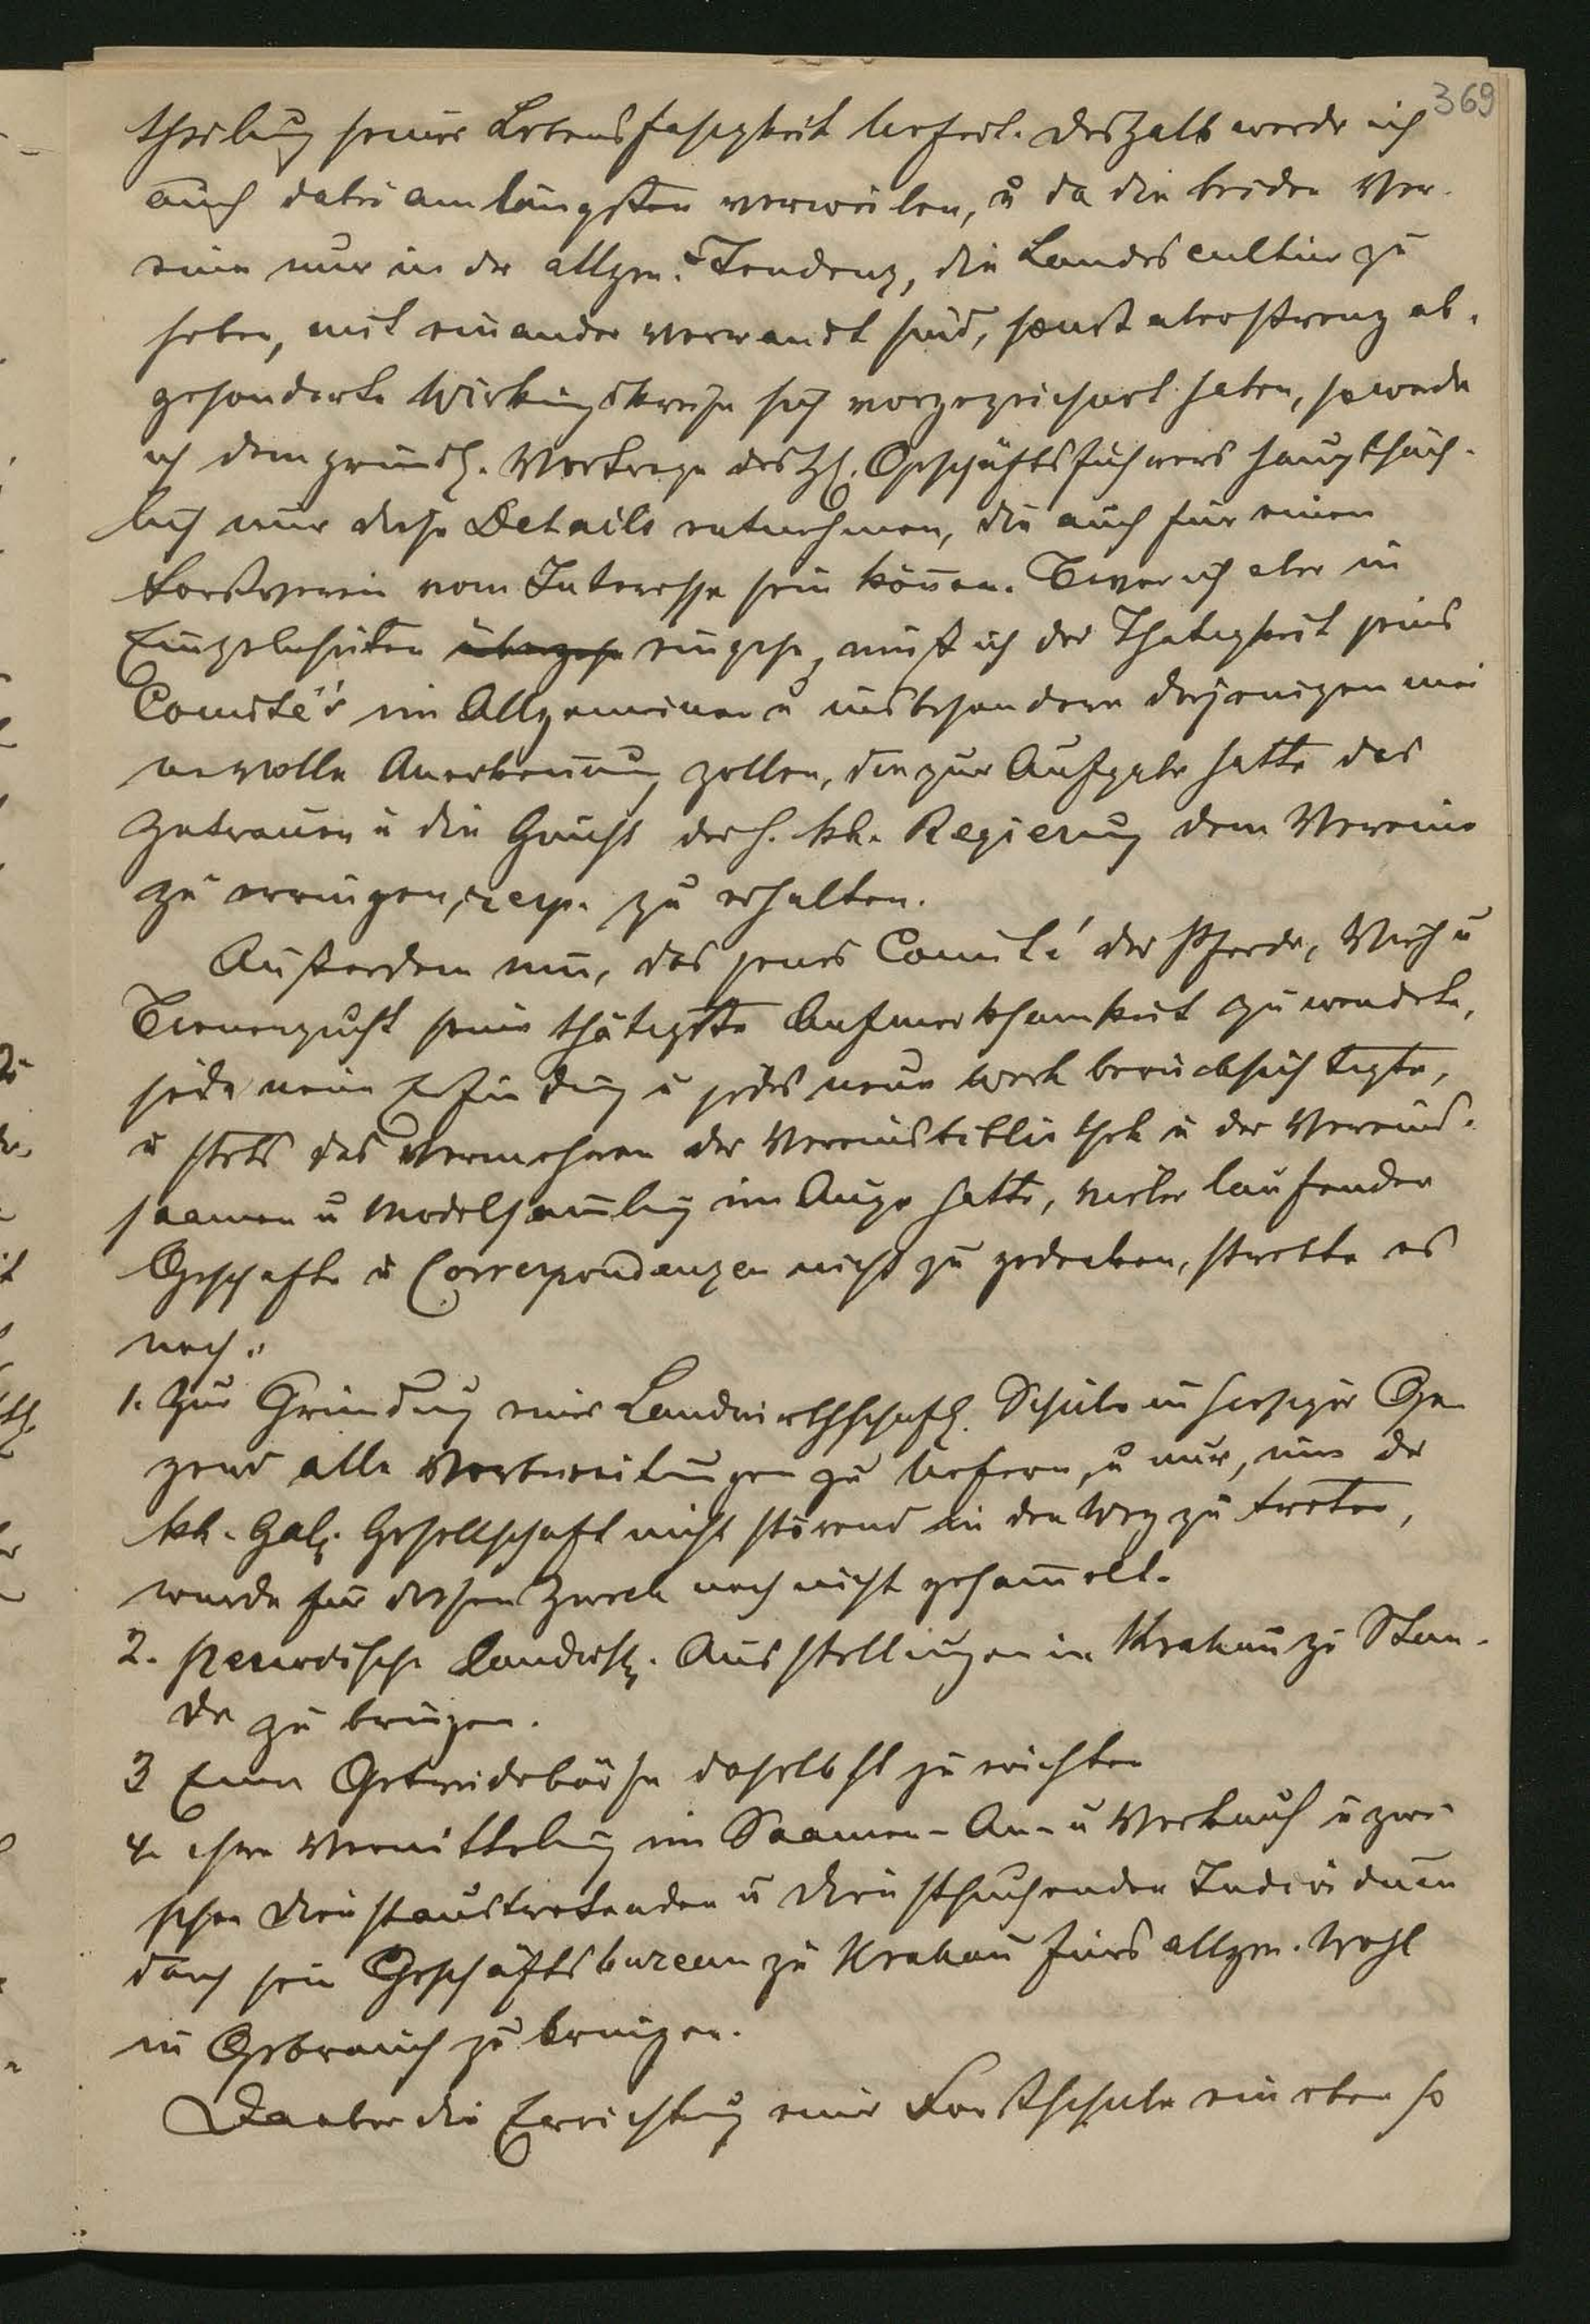 369
theilung seiner Lebensfähigkeit liefert. Deshalb werde ich
auch dabei am längsten verweilen, u da die beiden Ver-
eine nur in der allgem. Tendenz, die Landescultur zu
heben, mit einander verwandt sind, sonst aber streng ab-
gesonderte Wirkungskreise sich vorgezeichnet haben, so werde
ich dem gründl. Vortrage des H. Geschäftsführers hauptsäch-
lich nur diese Details entnehmen, die auch für einen
Forstverein vom Interesse sein können. Bevor ich aber in
Einzelnheiten übergehe eingehe, muß ich der Thätigkeit seines
Comité's im Allgemeinen u insbesondere derjenigen mei
ne volle Anerkennung zollen, die zur Aufgabe hatte das
Zutrauen u die Gunst der h. kk. Regierung dem Vereine
zu erringen, resp. zu erhalten.
Außerdem nun, das jenes Comité der Pferde, Vieh u
Bienenzucht seine thätigste Aufmerksamkeit zu wendete,
jede neue Erfindung u jedes neue Werk berücksichtigte,
u stets das Vermehren der Vereinsbibliothek u der Vereins-
saamen u Modelsamlung im Auge hatte, vieler laufender
Geschäfte u Correspondenzen nicht zu gedenken, strebte es
nach:
1. Zur Gründung einer Landwirthschaftl. Schule in hiesiger Ge-
gend alle Vorbereitungen zu liefern, u nur, um der
kk. Galiz. Gesellschaft nicht störend in den Weg zu treten,
wurde für diesen Zweck noch nicht gesammelt.
2. Periodische Landwth. Ausstellungen in Krakau zu Stan-
de zu bringen.
3 Eine Getreidebörse daselbst zu errichten
4. ihre Vermittelung im Saamen-An- u Verkauf u zwi-
schen Dienstaustretenden u Dienstsuchenden Individuen
durch sein Geschäftsbureau zu Krakau fürs allgem. Wohl
in Gebrauch zu bringen.
Da aber die Errichtung einer Forstschule ein eben so